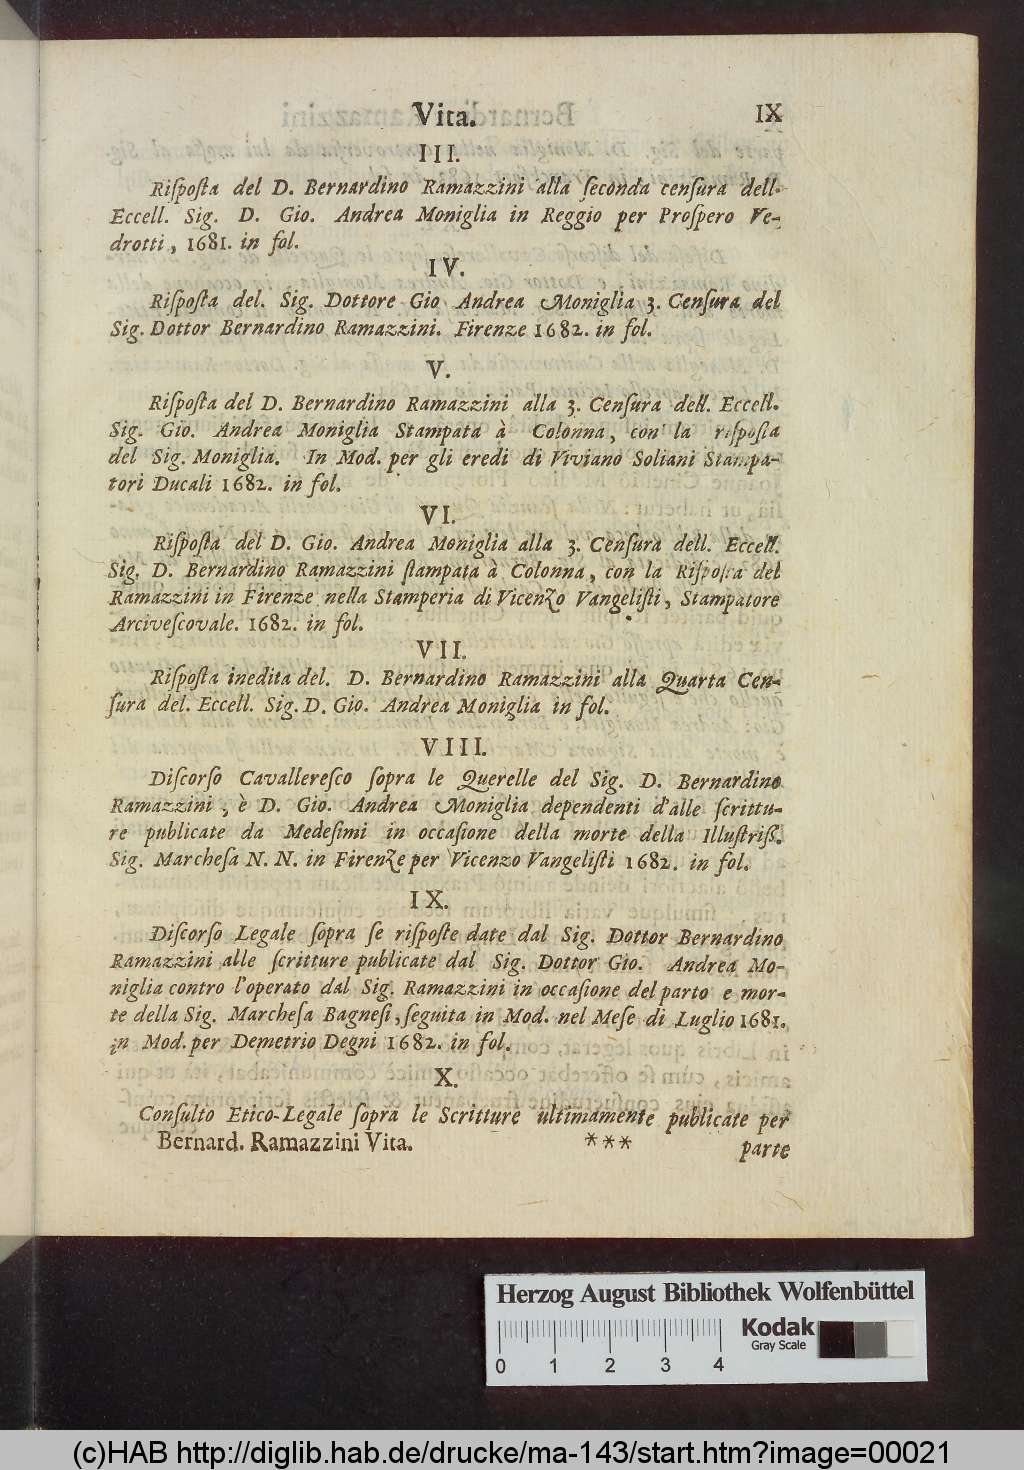 Vita. IX
III.
Riſpoſta del D. Bernardino Ramazzini alla ſeconda cenſura dell.
Eccell. Sig. D. Gio. Andrea Moniglia in Reggio per Proſpero Ve-
drotti, 1681. in fol.
IV.
Riſpoſta del. Sig. Dottore Gio Andrea Moniglia 3. Cenſura del
Sig. Dottor Bernardino Ramazzini. Firenze 1682. in fol.
V.
Riſpoſta del D. Bernardino Ramazzini alla 3. Cenſura dell. Eccell.
Sig. Gio. Andrea Moniglia Stampata à Colonna, con la riſpoſta
del Sig. Moniglia. In Mod. per gli eredi di Viviano Soliani Stampa-
tori Ducali 1682. in fol.
VI.
Riſpoſta del D. Gio. Andrea Moniglia alla 3. Cenſura dell. Eccell.
Sig. D. Bernardino Ramazzini ſtampata à Colonna, con la Riſpoſta del
Ramazzini in Firenze nella Stamperia di Vicenzo Vangeliſti, Stampatore
Arciveſcovale. 1682. in fol.
VII.
Riſpoſta inedita del. D. Bernardino Ramazzini alla Quarta Cen-
ſura del. Eccell. Sig. D. Gio. Andrea Moniglia in fol.
VIII.
Diſcorſo Cavallereſco ſopra le Querelle del Sig. D. Bernardino
Ramazzini, è D. Gio. Andrea Moniglia dependenti d'alle ſcrittu-
re publicate da Medeſimi in occaſione della morte della Illuſtriſſ.
Sig. Marcheſa N. N. in Firenze per Vicenzo Vangeliſti 1682. in fol.
IX.
Diſcorſo Legale ſopra ſe riſpoſte date dal Sig. Dottor Bernardino
Ramazzini alle ſcritture publicate dal Sig. Dottor Gio. Andrea Mo-
niglia contro l'operato dal Sig. Ramazzini in occaſione del parto e mor-
te della Sig. Marcheſa Bagneſi, ſeguita in Mod. nel Meſe di Luglio 1681.
in Mod. per Demetrio Degni 1682. in fol.
X.
Conſulto Etico-Legale ſopra le Scritture ultimamente publicate per
Bernard. Ramazzini Vita. *** parte
Herzog August Bibliothek Wolfenbüttel
Kodak
Gray Scale
0 1 2 3 4
(c)HAB http://diglib.hab.de/drucke/ma-143/start.htm?image=00021